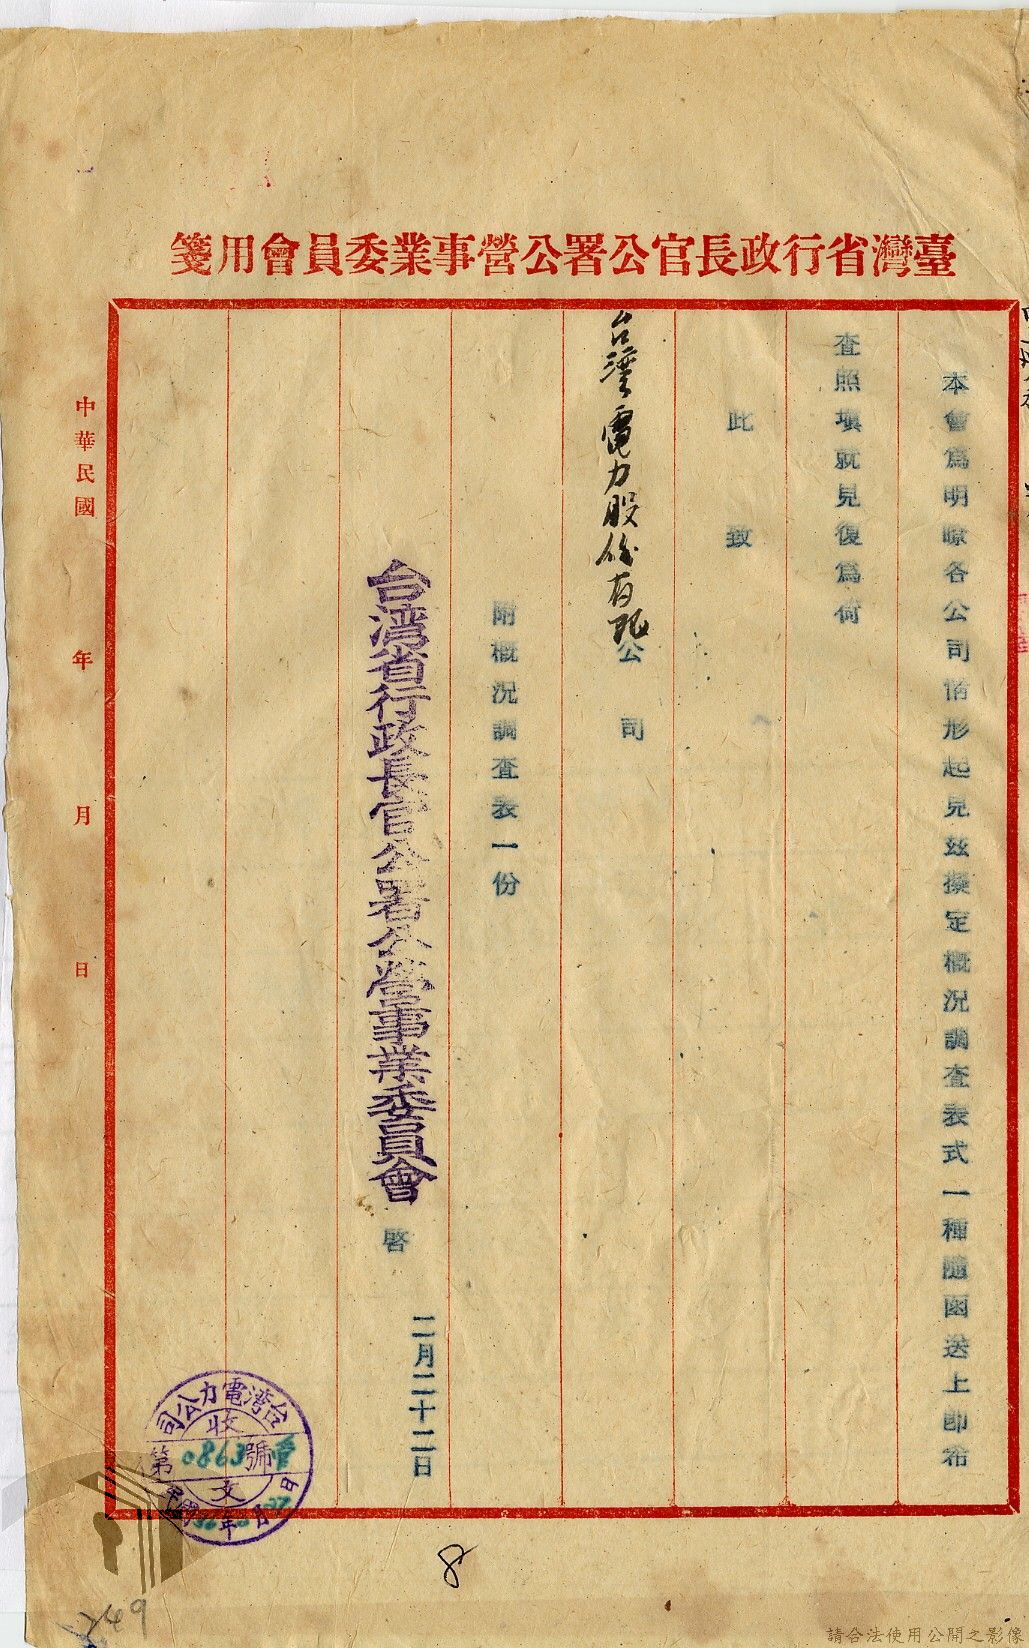 臺灣省行政長官公署公營事業委員會用箋
本會爲明瞭各公司情形起見茲擬定概況調查表式一種隨函送上卽希
查照塡就見復爲荷
此致
台灣電力股份有限公司
附概況調查表一份
台湾省行政長官公署公營事業委員會 啓 二月二十二日
中華民國 年 月 日
台湾電力公司
收
第0863號
文
年 月 日
8
249
請合法使用公開之影像